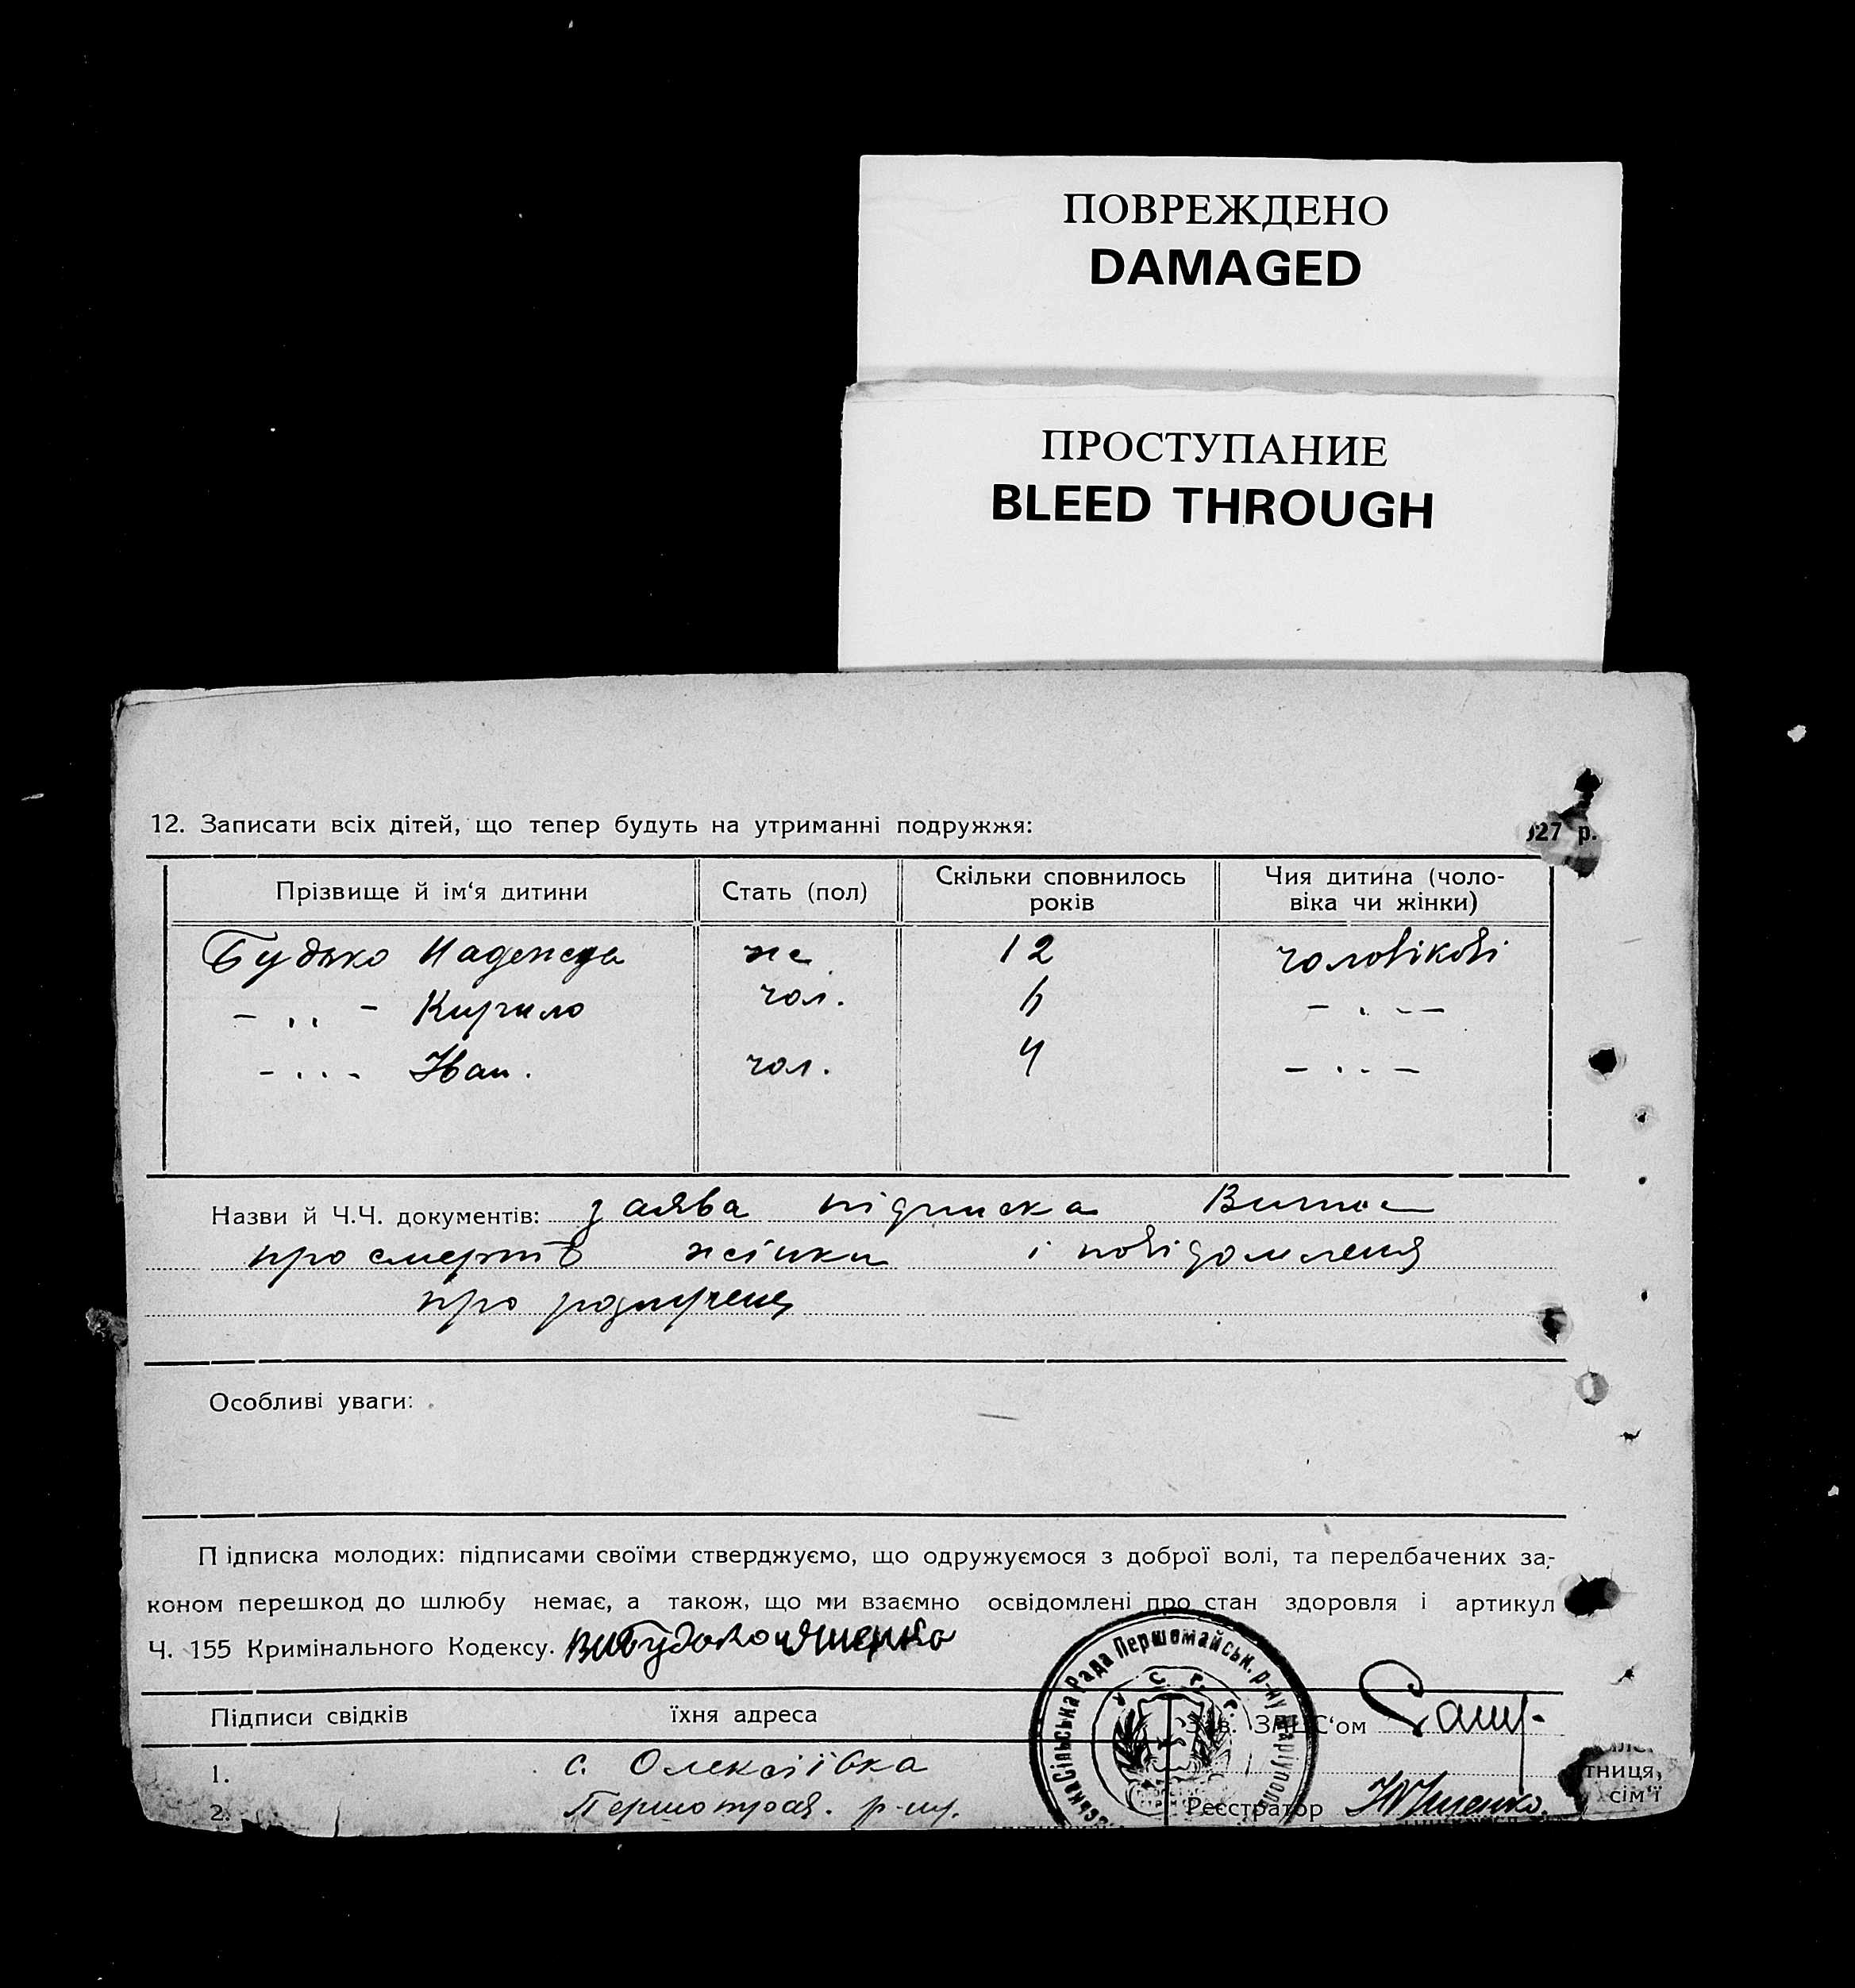 ПОВРЕЖДЕНО
DAMAGED
ПРОСТУПАНИЕ
BLEED THROUGH
12. Записати всіх дітей, що тепер будуть на утриманні подружжя:
27 р.
Прізвище й ім‘я дитини Стать (пол) Скільки сповнилось років Чия дитина (чоловіка чи жінки)
Будько Надежда же 12 чоловікові
- „ - Кирило чол. 6 - „ -
- „ - Іван. чол. 4 - „ -
Назви й Ч.Ч. документів: заява підписка
про смерть жінки і повідомленя
про
Особливі уваги:
Підписка молодих: підписами своїми стверджуємо, що одружуємося з доброї волі, та передбачених за-
коном перешкод до шлюбу немає, а також, що ми взаємно освідомлені про стан здоровля і артикул
Ч. 155 Кримінального Кодексу.
Сільська Рада Першомайськ. р-ну Маріупол
У. С. Р. Р.
Підписи свідків їхня адреса Зав. ЗАГС‘ом
1. с. Олексіївка тниця,
2. Реєстратор сім‘ї